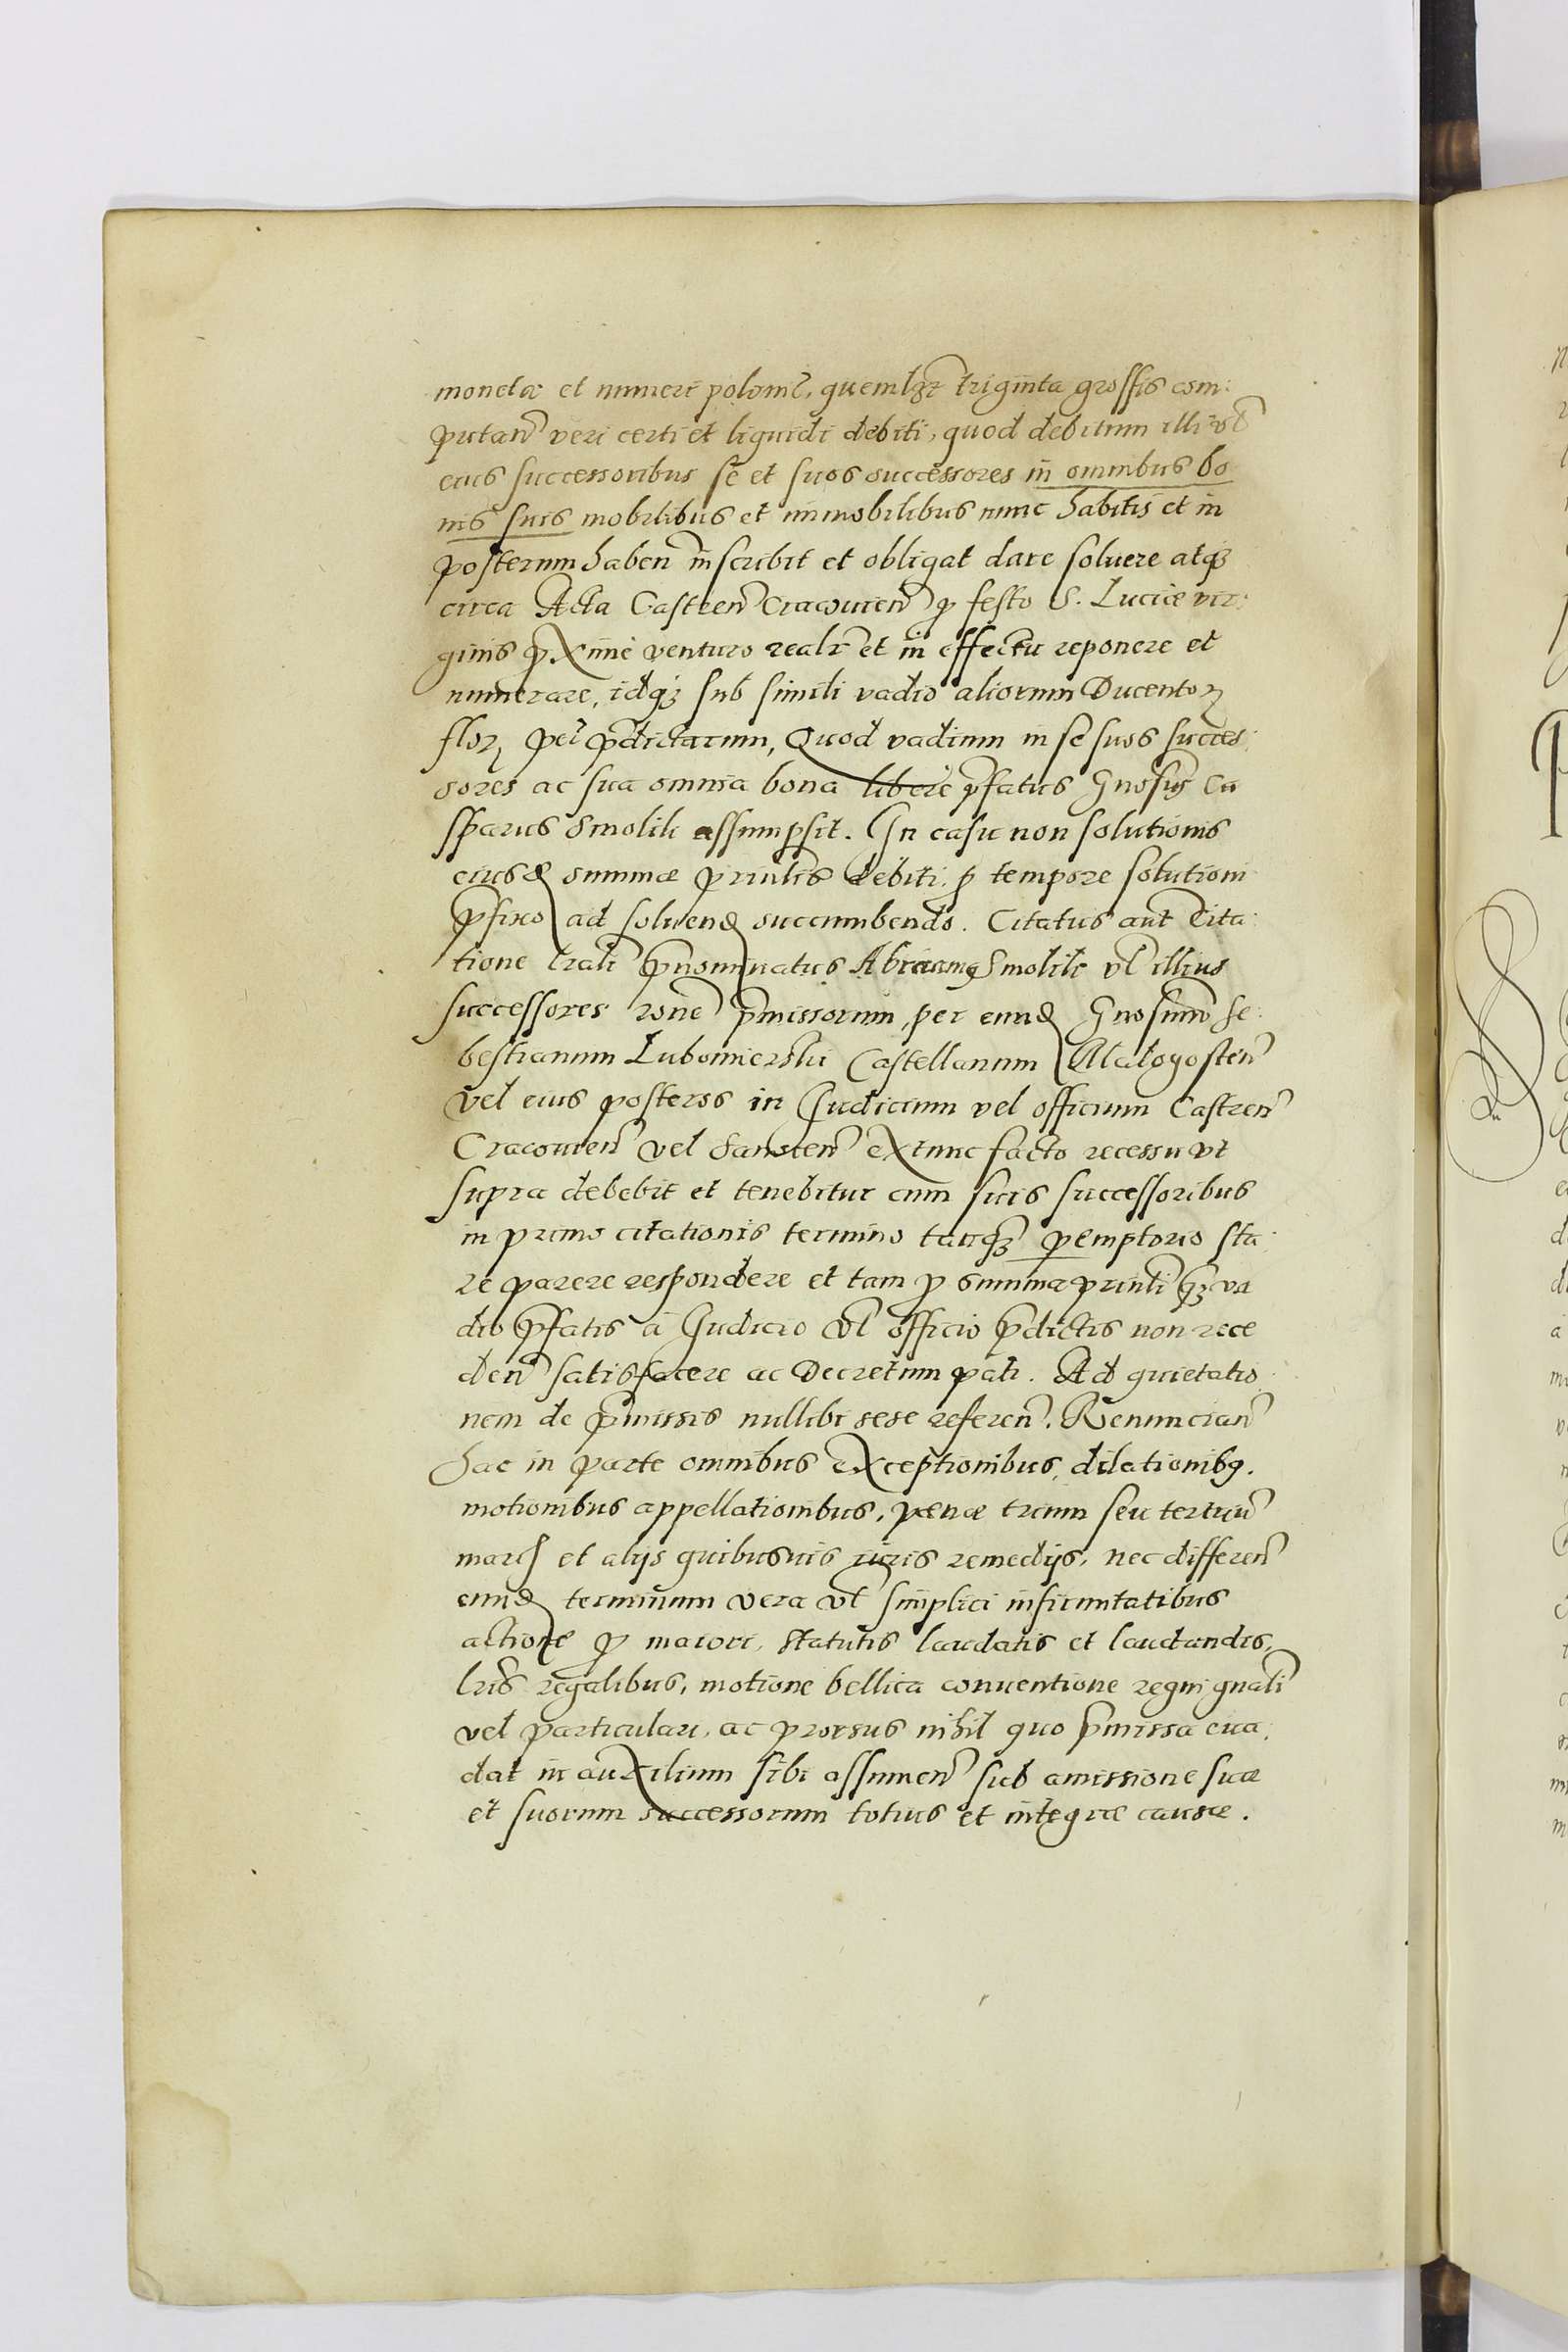 monetæ et numeri poloniꝭ, quemlꝫt triginta grossis com:
putan̄ veri certi et liquidi debiti, quod debitum illi vl̄
eius successoribus se et suos successores in omnibus bo
nis suis mobilibus et immobilibus nunc habitis et in
posterum haben̄ inscribit et obligat dare soluere atqꝫ
circa Acta Castren̄ Cracouien̄ ꝓ festo S. Luciæ vir:
ginis ꝓxime venturo realr̄ et in effectu reponere et
numerare, idqꝫ sub simili vadio aliorum Ducentoꝝ
floꝝ pec̄ p̄dictarum, Quod vadium in se suos succes:
sores ac sua omnia bona libere p̄fatus Gnosus Ca
sparus Smolik assumpsit. In casu non solutionis
eiusd summæ prinlis debiti, ꝓ tempore solutioni
p̄fixo ad soluend succumbendo. Citatus aut Cita:
tione lr̄ali p̄nominatus Abraamꝯ Smolik vl̄ illius
successores rōne p̄missorum, per eund Gnosum Se:
bestianum Lubomierski Castellanum Malogosten̄
vel eius posteros in Judicium vel officium Castren̄
Cracouien̄ vel Sandecen̄ extunc facto recessu vt
supra debebit et tenebitur cum suis successoribus
in primo citationis termino tanqꝫ peremptorio sta:
re parere respondere et tam ꝓ summa prinli qꝫ va
dio p̄fatis à Judicio vl̄ officio p̄dictis non rece
den̄ satisfacere ac Decretum pati. Ad quietatio
nem de p̄missis nullibi sese referen̄. Renuncian̄
hac in parte omnibus exceptionibus, dilationibꝯ.
motionibus appellationibus, pænæ trium seu tertiū
marc et alijs quibusuis iuris remedijs, nec differen̄
eund terminum vera vl̄ simplici infirmitatibus
actione ꝓ maiori, statutis laudatis et laudandis,
lr̄is regalibus, motione bellica conuentione regni gnali
vel particulari, ac prorsus nihil quo p̄missa eua:
dat in auxilium sibi assumen̄ sub amissione suæ
et suorum successorum totius et integræ causæ.